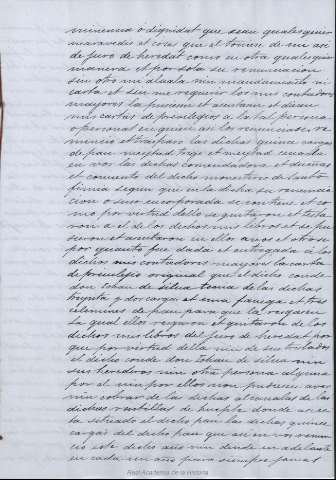 minencia ó dignidat que sean qualesquier
maravedis et cosas que el toviese de mi asi
de juro de heredat como en otra qualesquier
manera et por sola su renunciacion
sin otro mi alvala nin mandamiento ni
carta et sin me requerir los mis contadores
mayores la pusiesen et asentasen et diesen
mis cartas de previllegios a la tal persona
o personas en quien asi los renunciase, re-
nuncio et traspaso las dichas quince cargas
de pan meytad trigo et meytad cevada
en vos las dichas comendadora et dueñas
et convento del dicho monesterio de Santo
firma segun que en la dicha su renuncia-
cion o suso encorporada se contiene et co-
mo por virtud dello se quitaron et testa-
ron a el de los dichos mis libros et se pu-
sieron et asentaron en ellos a vos et otrosi
por quanto fue dada et entregada a los
dichos mis contadores mayores la carta
de previlegio original que el dicho conde
don Johan de Silva tenia de las dichas
treynta y dos cargas et una fanega et tres
celemines de pan para que la rasgasen
la qual ellos rasgaron et quitaron de los
dichos mis libros del juro de heredat por
que por virtud della nin de sus traslados
el dicho conde don Johan de Silva nin
sus herederos nin otra persona alguna
por el nin por ellos non pudiesen aver
nin cobrar de las dichas alcavalas de las
dichas
situado el dicho pan las dichas quince
cargas del dicho pan que asi en vos renun-
ció este dicho año nin dende en adelante
en cada un año para siempre jamas
Real Academia de la Historia